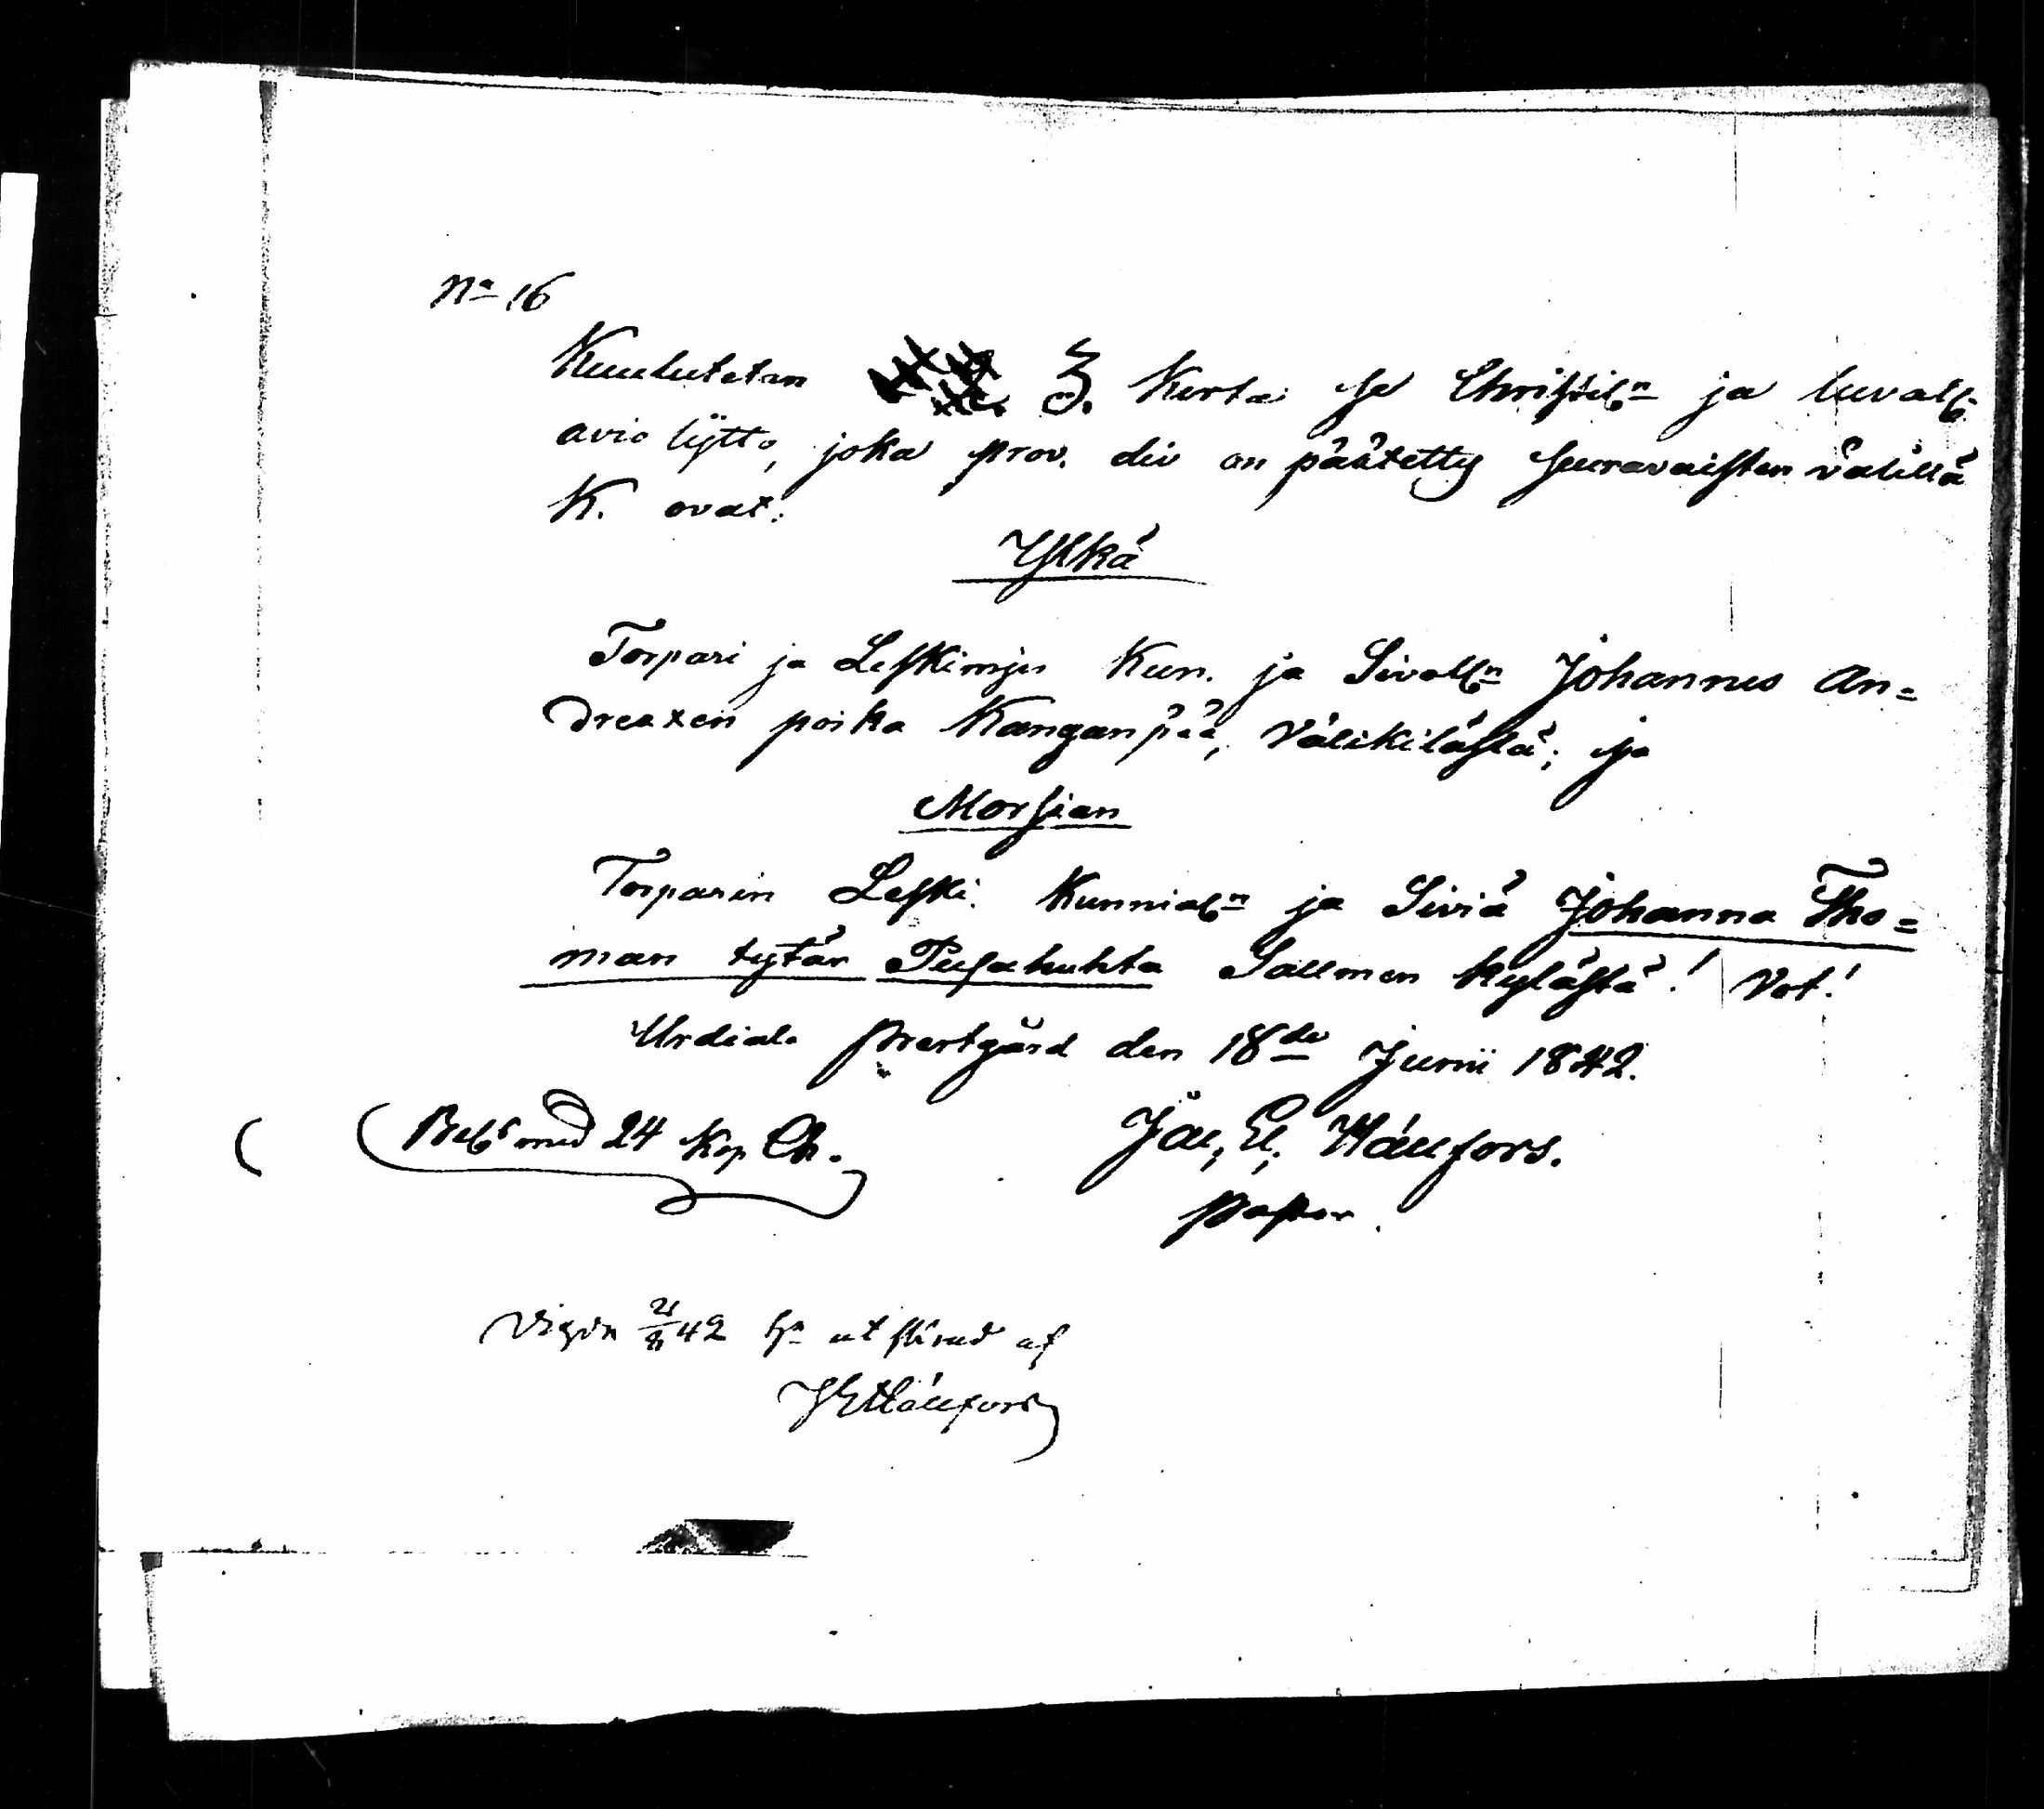 No 16
Kuulutetan 3. Kerta se Christiln ja luvall.
avio lijtto, joka prov. div on päätetty seuravaisten välillä
K. ovat:
Ylkä
Torpari ja Leskimjes Kun. ja Sivolln Johannes An=
drexen poika Kanganpää, Välikilästä; ja
Morsian
Torparin Leski Kunnialn ja Siviä Johanna Tho=
man tytär Pusahuhta Sallmen kylästä! Vot!
Urdiala Prestgård den 18de Junii 1842.
med 24 Kop Ch. Jac. E. Hällfors.
Pastor.
Vigde 42 utfärad af
JEHällfors